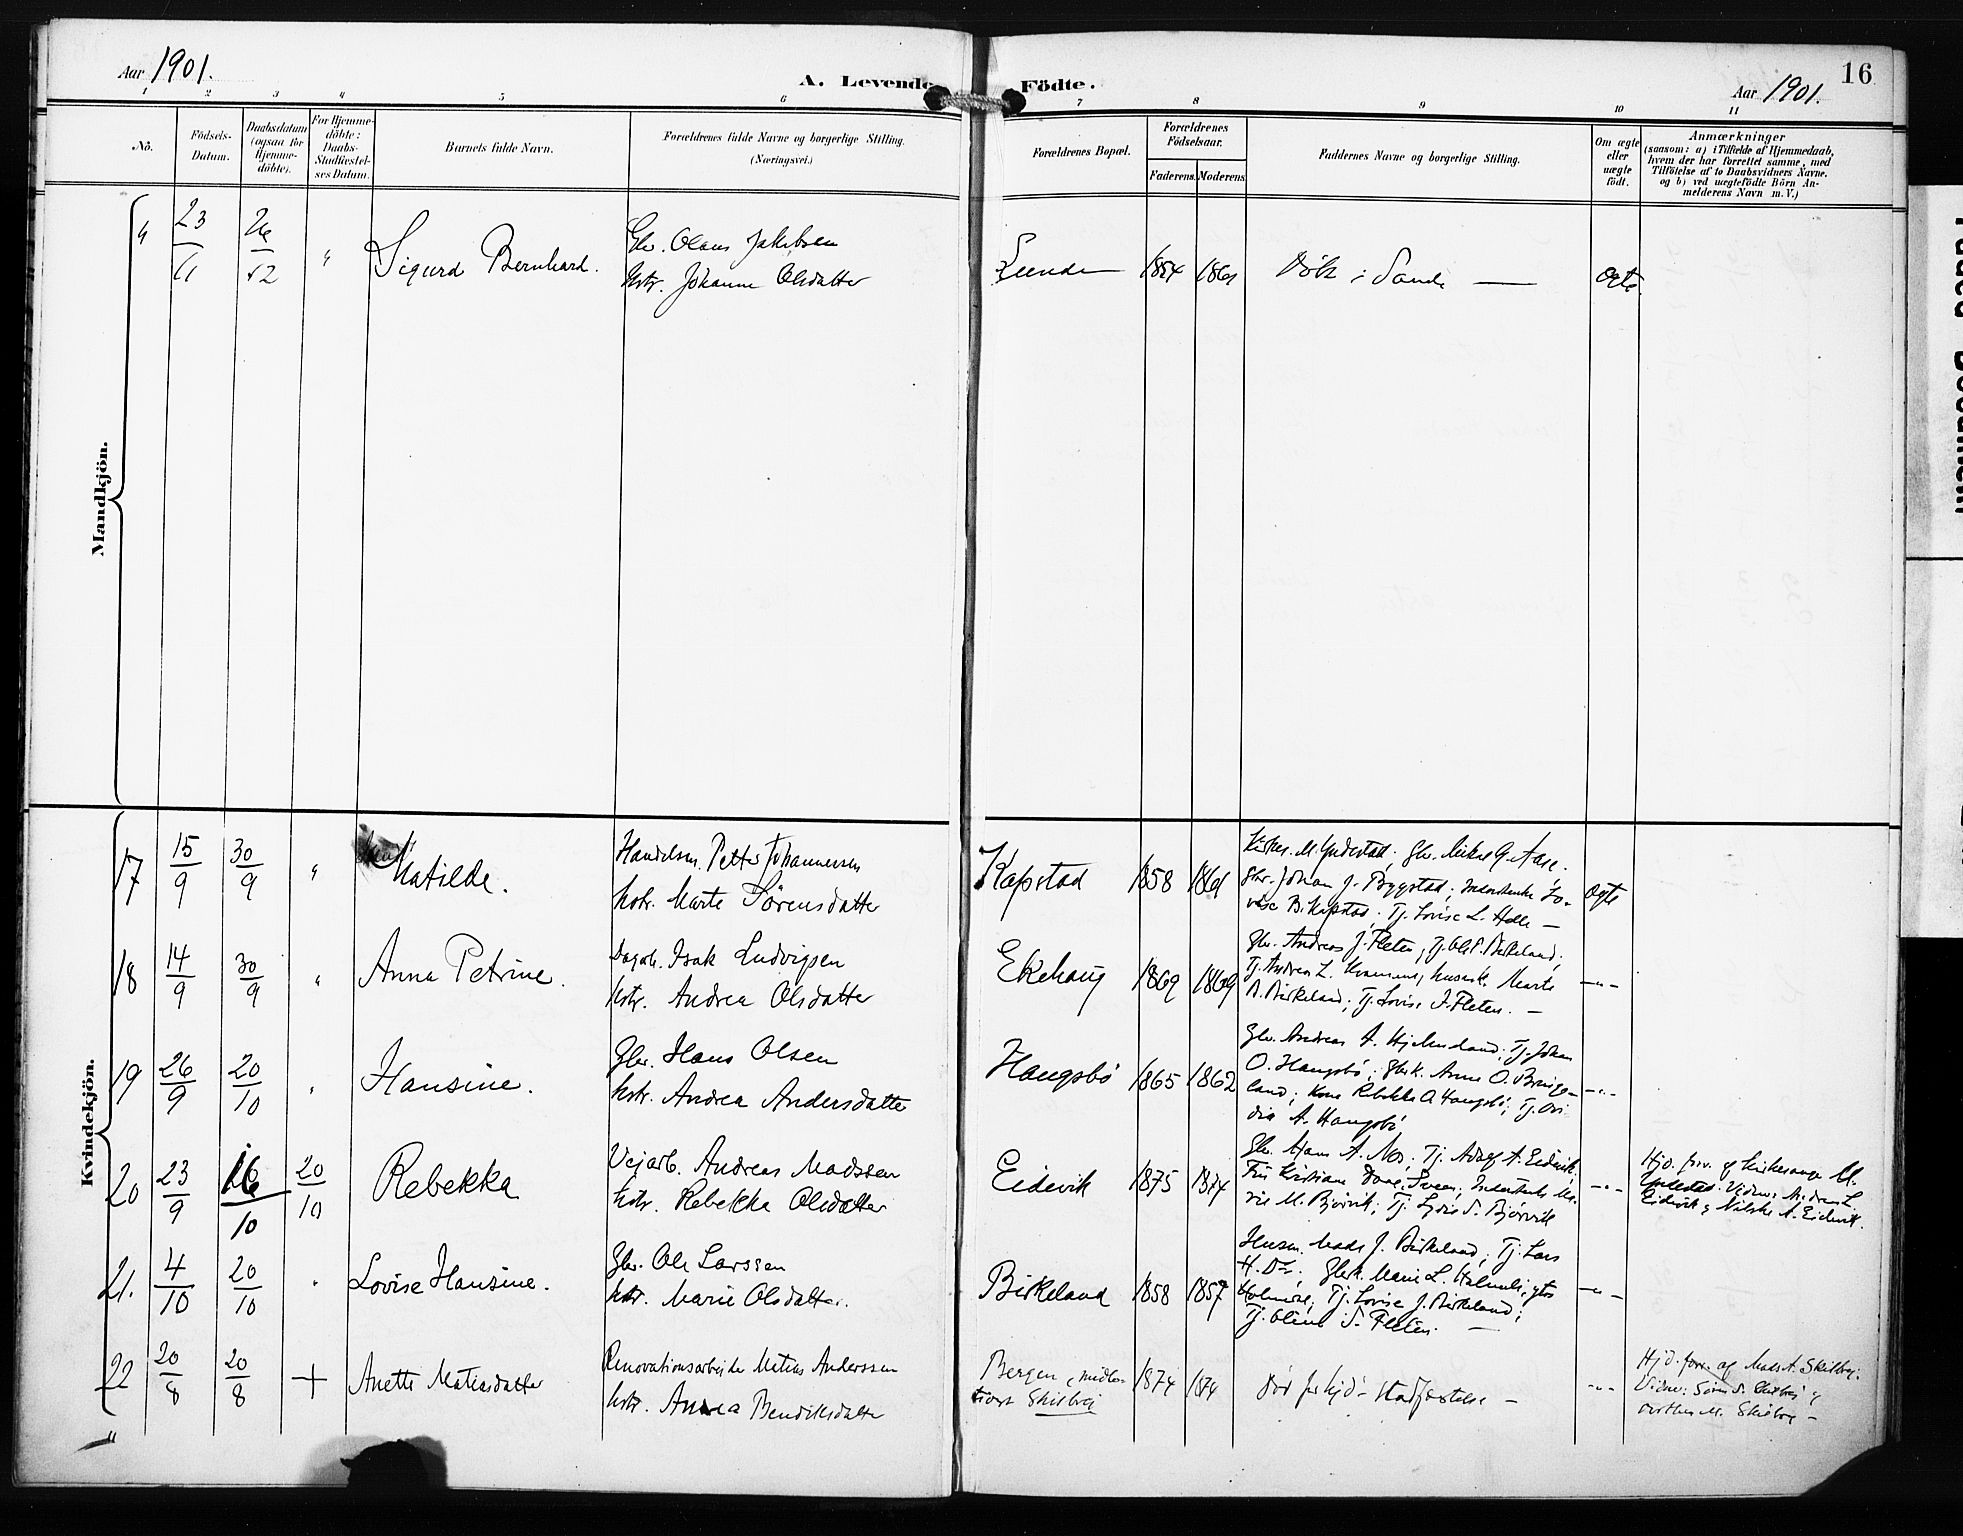 Aar 1901.
A. Levende Födte.
16
Aar 1901.
1 2 3 4 5 6 7 8 9 10 11
No.
Födsels-
Datum.
Daabsdatum
(ogsaa for
Hjemme-
döbte).
For Hjemme-
döbte:
Daabs-
Stadfæstel-
ses Datum.
Barnets fulde Navn.
Forældrenes fulde Navne og borgerlige Stilling.
(Næringsvei.)
Forældrenes Bopæl.
Forældrenes
Födselsaar.
Faderens. Moderens.
Faddernes Navne og borgerlige Stilling.
Om ægte
eller
uægte
födt.
Anmærkninger
(saasom: a) i Tilfælde af Hjemmedaab,
hvem der har forrettet samme, med
Tilföielse af to Daabsvidners Navne.
og b) ved uægtefödte Börn An-
melderens Navn m. V.)
Mandkjön.
" 23/11 26/12 " Sigurd Bernhard.
Gbr. Olaus Jakobsen
Kstr. Johanne Olsdatter
Lunde 1854 1861 Døbt i Sande — ægte.
Kvindekjön.
17 15/9 30/9 " Matilde.
Handelsm. Petter Johannessen
Kstr. Marte Sørensdatter
Kapstad 1858 1861
Kirkes. M. Yndestad; Gbr. Mikal G. Aase.
Gbr. Johan J. Byggstad; Inderstenke Lo-
vise B. Kapstad; Tj. Lovise L. Holle —
ægte
18 14/9 30/9 " Anna Petrine.
Dagarb. Isak Ludvigsen
Kstr. Andrea Olsdatter
Ekehaug 1869 1869
Gbr. Andreas J. Fleten; Tj. Ole P. Birkeland;
Tj. Andrea L. Kvamme; Husmk. Marte
B. Birkeland; Tj. Lovise J. Fleten. —
—"—
19 26/9 20/10 " Hansine.
Gbr. Hans Olsen
Kstr. Andrea Andersdatter
Haugsbø 1865 1862
Gbr. Andreas A. Hjelmeland; Tj. Johan
O. Haugsbø; Gbrk. Anne O. Bringe-
land; Kone Rebekka O. Haugsbø; Tj. Ovi-
dia A. Haugsbø
—"—
20 23/9 16/10 20/10 Rebekka
Vejarb. Andreas Madssen
Kstr. Rebekka Olsdatter
Eidevik 1875 1874
Gbr. Hans A. Nes; Tj. Adolf A. Eidevik;
Fru Kristiane Sveen; Inderstenke Ma-
rie M. Bjørvik; Tj. Lovise S. Bjørvik
—"—
Hjd. forr. af Kirkesanger M.
Yndestad. Vidner: Andreas L.
Eidevik og A. Eidevik.
21. 4/10 20/10 " Lovise Hansine.
Gbr. Ole Larssen
Kstr. Marie Olsdatter.
Birkeland 1858 1857
Husm. Mads J. Birkeland; Tj. Lars
H. Ds; Gbrk. Marie L.
Tj. Lovise J. Birkeland;
Tj. Oline S. Fleten. —
—"—
22 20/8 20/8 + Anette Matiasdatter
Renovationsarbeider Matias Anderssen
Kstr. Anna Bendiksdatter
Bergen, midler-
tidigt Skilbrei
1874 1874
Død før hjd's Stadfæstelse —
—"—
Hjd. forr. af Mads A. Skilbrei.
Vidner: Søren S. Skilbrei og
M. Skilbrei —
"